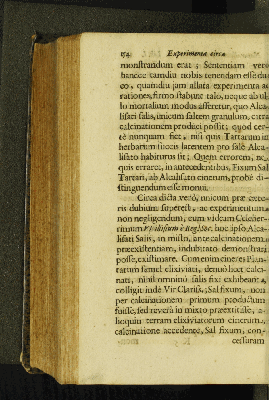 154 Experimenta circa
monstrandum erat; Sententiam vero
hancce tamdiu nobis tenendam esse du
co, quamdiu jam allata experimenta ac
rationes firmo stabunt talo, neque ab ul
lo mortalium modus afferetur, quo Alca
lisati salis, unicum saltem granulum, citra
calcinationem produci possit; quod cer-
te nunquam fiet, nisi quis Tartarum in
herbarum succis latentem pro sale Alca-
lisato habiturus sit; Quem errorem, ne
quis erraret, in antecedentibus, Fixum Sal
Tartari, ab Alcalisato cinerum, probè di-
stinguendum esse monui.
Circa dicta verò, unicum præ cæte-
ris dubium superest, ac experimentum
non negligendum, cum videam Celeber-
rimum huc ipso Alca-
lisati Salis, in misto, ante calcinationem
præexistentiam, indubitatò demonstrari
posse, existimare. Cum enim cineres Plan-
tarum semel elixiviati, denuò licet calci-
nati, nihil omninò salis fixi exhibeant,
colligit inde Vir Clariss.; Sal fixum, non
per calcinationem primùm productum
fuisse, sed reverà in mixto præextitisse, a-
lioquin terram elixiviatorum cinerum,
calcinatione accedente, Sal fixum, con-
cessuram